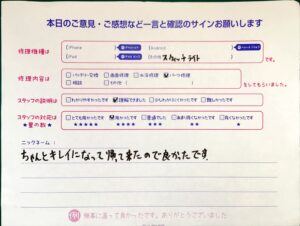 本日のご意見・ご感想など一言と確認のサインお願いします
修理機種は
iPhone
Android
iPad
その他 スウィッチライト
です。
修理内容は
バッテリー交換 画面修理 水没修理 パーツ修理
相談 その他
をしてもらいました。
スタッフの説明は
わかりやすかったです 理解できました 少しわかりにくかったです 難しかったです
スタッフの対応は
★星の数★
とても良かったです 良かったです 普通でした あまり良くなかったです 良くなかったです
★★★★★ ★★★★ ★★★ ★★ ★
ニックネーム：
ちゃんとキレイになって帰って来たので良かったです
無事に直って良かったです。ありがとうございました